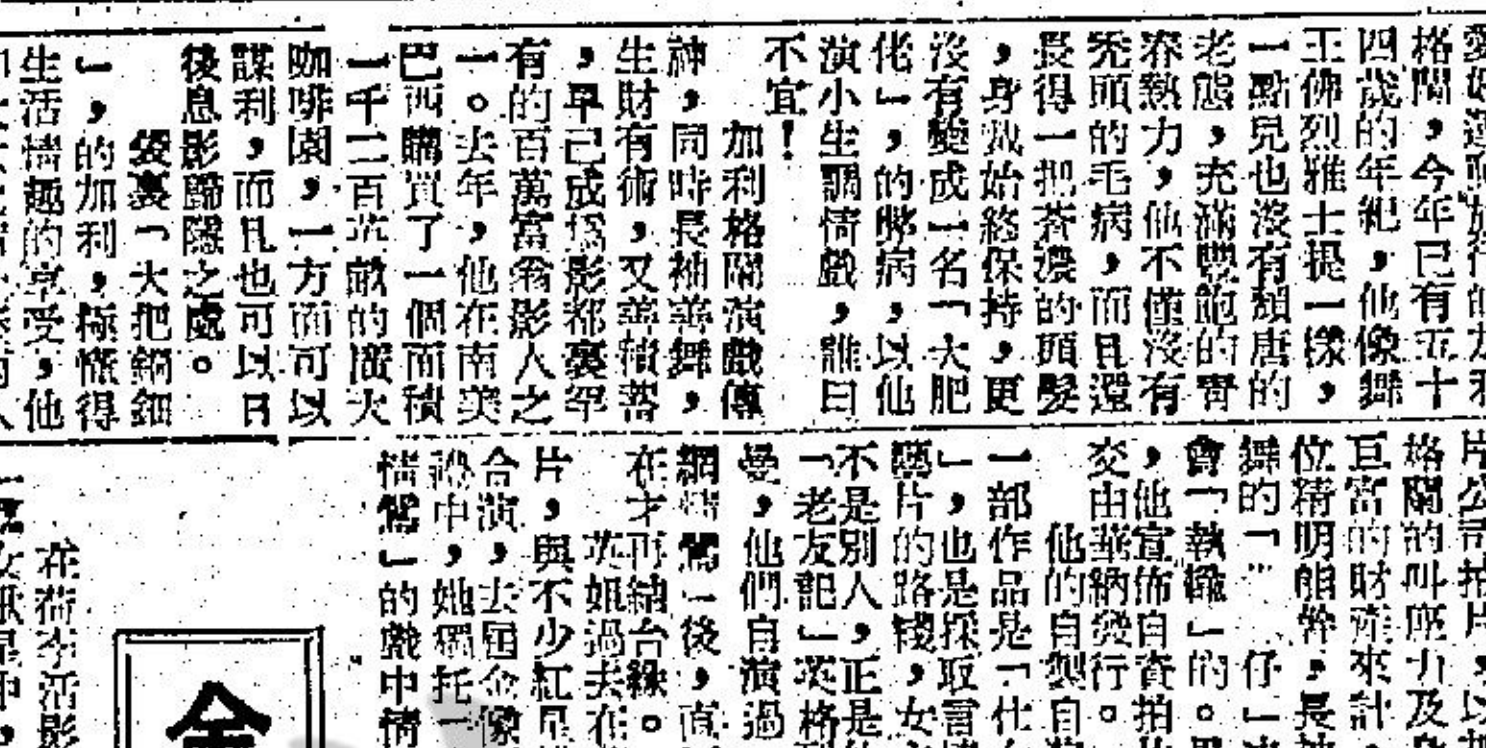 愛好運動旅行的加利
格蘭，今年已有五十
四歲的年紀，他像舞
王佛烈雅士提一樣，
一點兒也沒有頹唐的
老態，充滿豐飽的青
春熱力，他不僅沒有
禿頭的毛病，而且還
長得一把蒼濃的頭髮
，身裁始終保持，更
沒有變成一名「大肥
佬」，的弊病，以他
演小生調情戲，誰曰
不宜！
加利格蘭演戲傳
神，同時長袖善舞，
生財有術，又善積蓄
，早已成爲影都裏罕
有的百萬富翁影人之
一。去年，他在南美
巴西購買了一個面積
一千二百英畝的廣大
咖啡園，一方面可以
謀利，而且也可以日
後息影歸隱之處。
袋裏「大把銅鈿
」，的加利，極懂得
生活情趣的享受，他
片公司拍片，以
格蘭的叫座力及
巨富的財產來計
位精明能幹，長袖
舞的「"仔」
會「執輸」的。
，他宣佈自資拍
交由華納發行。
他的自製自
一部作品是「仕
」，也是採取言情
艷片的路綫，女
不是別人，正是
「老友記」英格
曼，他們自演過
網情鴛」後，直
在才再結台緣。
英姐過去在
片，與不少紅星
合演，去屆金像
中，她獨托一
情鴛」的戲中情
金
在荷李活影